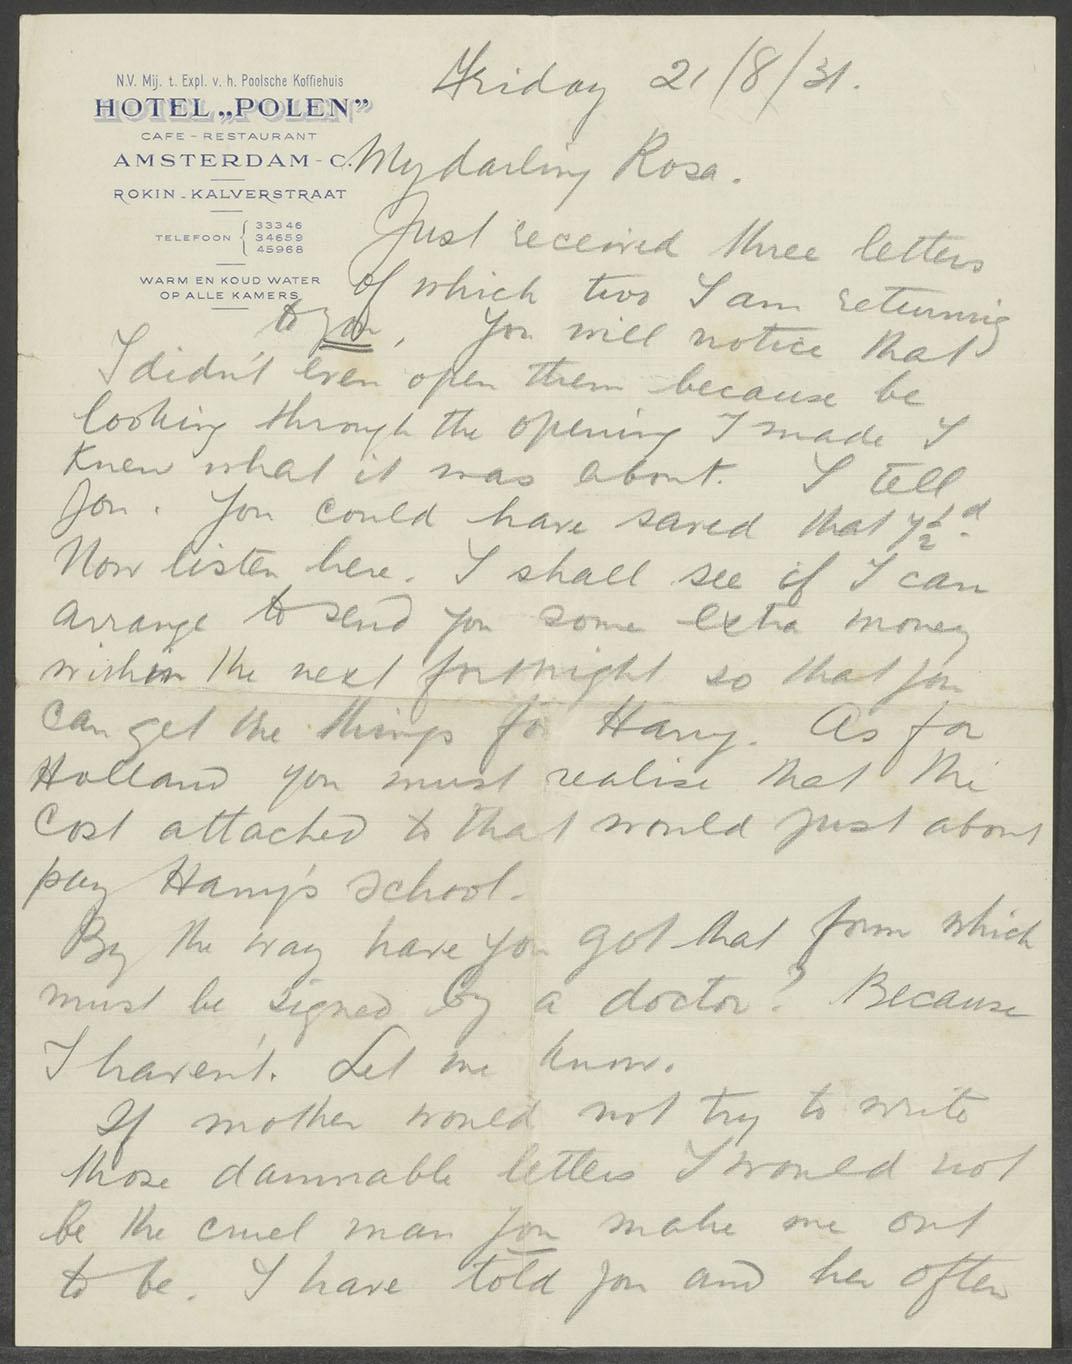 N.V. Mij. t. Expl. v. h. Poolsche Koffiehuis
HOTEL „POLEN”
CAFE - RESTAURANT
AMSTERDAM - C.
ROKIN - KALVERSTRAAT
TELEFOON { 33346
34659
45968
WARM EN KOUD WATER
OP ALLE KAMERS
Friday 21/8/31.
My darling Rosa.
Just received three letters
of which two I am returning
to you, You will notice that
I didn't even open them because be
looking through the opening I made I
knew what it was about. I tell
you. You could have saved that 7½d.
Now listen here. I shall see if I can
arrange to send you some extra money
within the next fortnight so that you
can get the things for Harry. As for
Holland you must realise that the
cost attached to that would just about
pay Harry's school.
By the way have you got that form which
must be signed by a doctor? Because
I haven't. Let me know.
If mother would not try to write
those damnable letters I would not
be the cruel man you make me out
to be. I have told you and her often